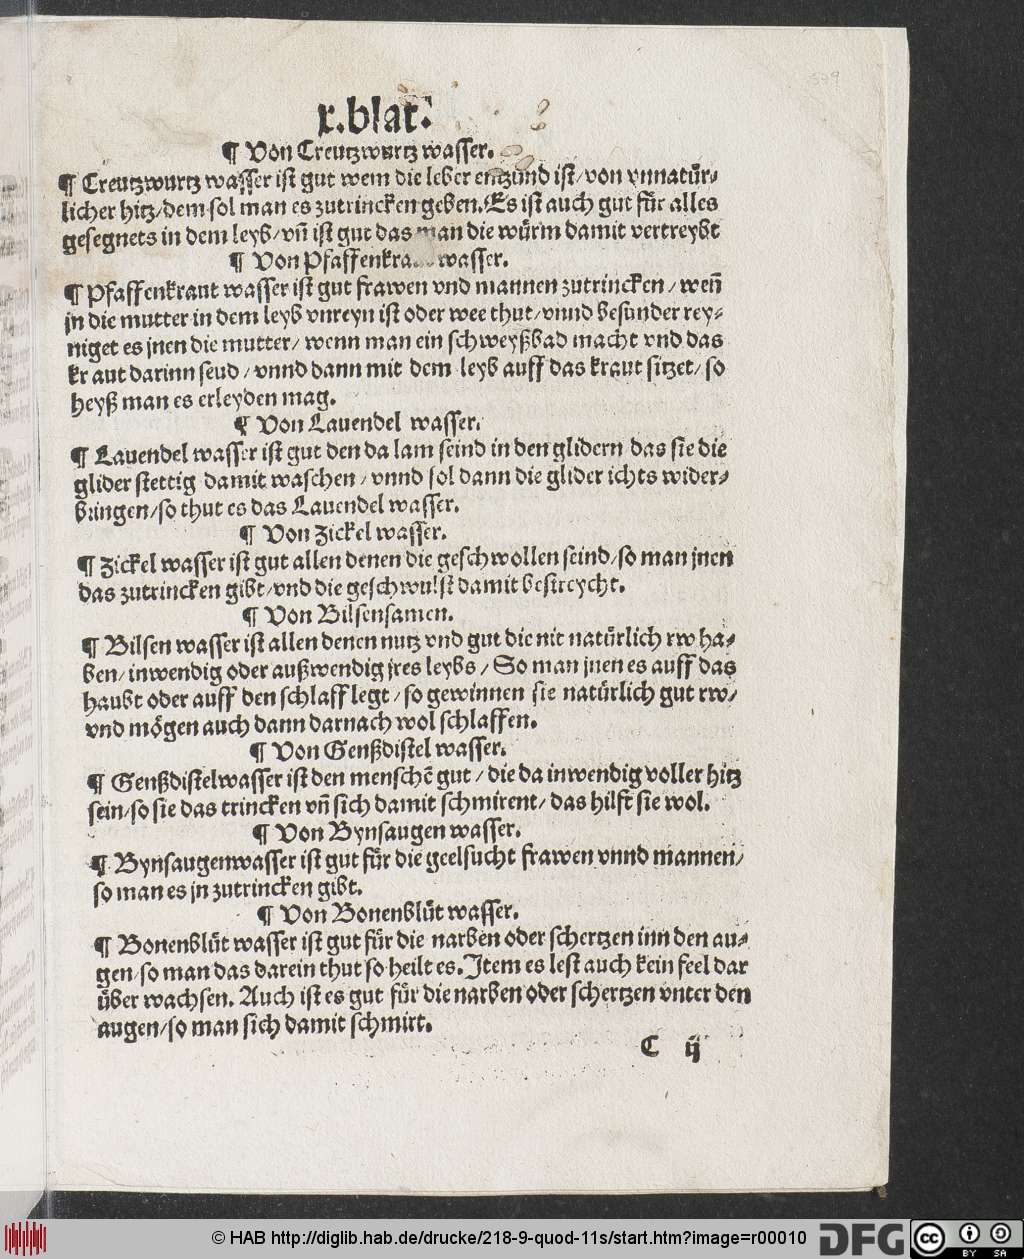 x.blat.
¶ Von Creutzwurtz wasser.
¶ Creutzwurtz wasser ist gut wem die leber entzünd ist/von vnnatür⸗
licher hitz/dem sol man es zutrincken geben.Es ist auch gut für alles
gesegnets in dem leyb/vñ ist gut das man die würm damit vertreybt
¶ Von Pfaffenkra wasser.
¶ Pfaffenkraut wasser ist gut frawen vnd mannen zutrincken/weñ
jn die mutter in dem leyb vnreyn ist oder wee thut/vnnd besunder rey⸗
niget es jnen die mutter/wenn man ein schweyßbad macht vnd das
kraut darinn seud/vnnd dann mit dem leyb auff das kraut sitzet/so
heyß man es erleyden mag.
¶ Von Lauendel wasser.
¶ Lauendel wasser ist gut den da lam seind in den glidern das sie die
glider stettig damit waschen/vnnd sol dann die glider ichts wider⸗
bringen/so thut es das Lauendel wasser.
¶ Von Zickel wasser.
¶ Zickel wasser ist gut allen denen die geschwollen seind/so man jnen
das zutrincken gibt/vnd die geschwulst damit bestreycht.
¶ Von Bilsensamen.
¶ Bilsen wasser ist allen denen nutz vnd gut die nit natürlich rw ha⸗
ben/inwendig oder außwendig jres leybs/So man jnen es auff das
haubt oder auff den schlaff legt/so gewinnen sie natürlich gut rw/
vnd mögen auch dann darnach wol schlaffen.
¶ Von Genßdistel wasser.
¶ Genßdistelwasser ist den menschē gut/die da inwendig voller hitz
sein/so sie das trincken vñ sich damit schmirent/das hilft sie wol.
¶ Von Bynsaugen wasser.
¶ Bynsaugenwasser ist gut für die geelsucht frawen vnnd mannen/
so man es jn zutrincken gibt.
¶ Von Bonenblüt wasser.
¶ Bonenblüt wasser ist gut für die narben oder schertzen inn den au⸗
gen/so man das darein thut so heilt es.Item es lest auch kein feel dar
über wachsen. Auch ist es gut für die narben oder schertzen vnter den
augen/so man sich damit schmirt.
C ij
© HAB http://diglib.hab.de/drucke/218-9-quod-11s/start.htm?image=r00010
DFG
cc BY SA